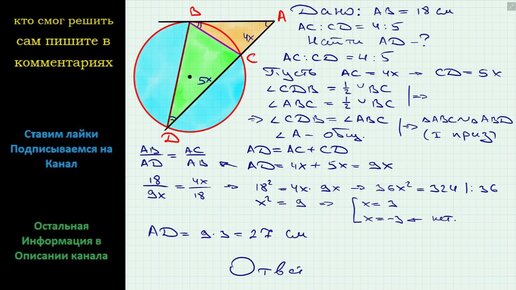 кто смог решить
сам пишите в
комментариях
Ставим лайки
Подписываемся на
Канал
Остальная
Информация в
Описании канала
B
A
4x
C
5x
D
Дано: AB = 18 см
AC:CD = 4:5
Найти AD - ?
AC:CD = 4:5
Пусть AC = 4x → CD = 5x
∠CDB = ½ ◡BC
∠ABC = ½ ◡BC |⇒
⇒ ∠CDB = ∠ABC |⇒ △ABC∾△ABD
∠A - общ. (I приз)
AB/AD = AC/AB AD = AC + CD
AD = 4x + 5x = 9x
18/9x = 4x/18 ⇒ 18² = 4x · 9x ⇒ 36x² = 324 |: 36
x² = 9 ⇒ [x = 3
x = -3 ← нет.
AD = 9·3 = 27 см
Ответ